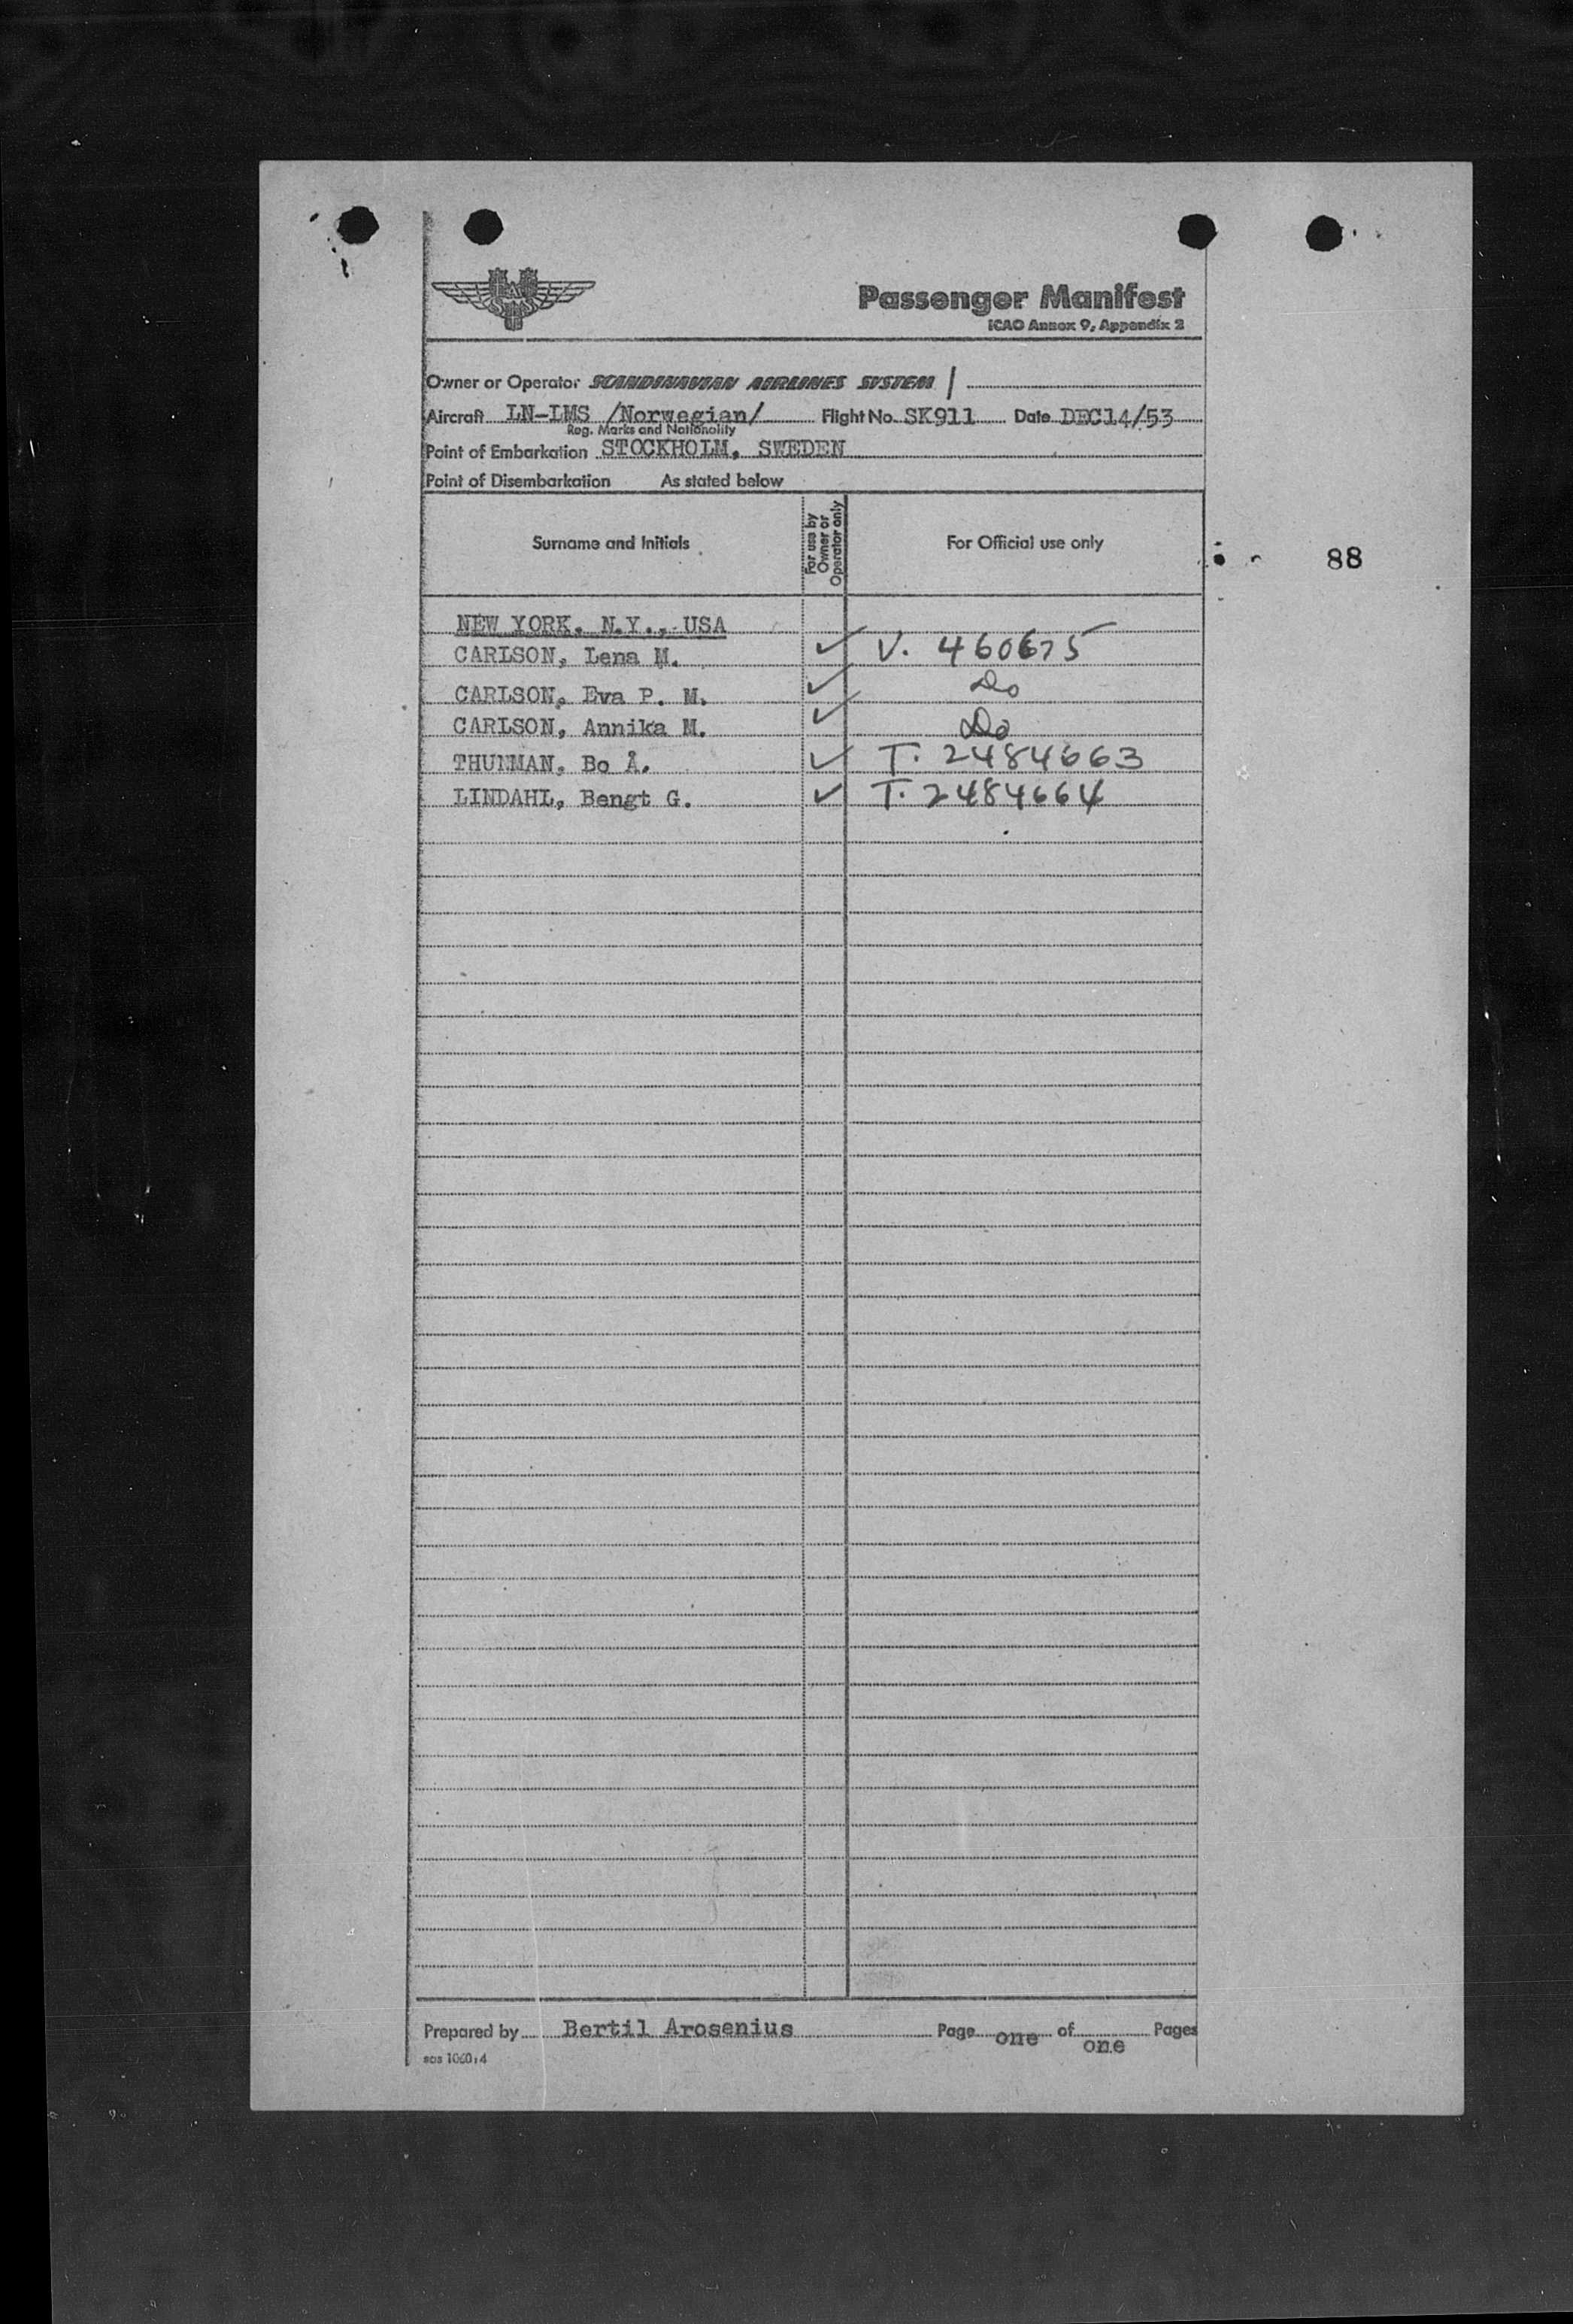 SAS
Passenger Manifest
ICAO Annex 9, Appendix 2
Owner or Operator SCANDINAVIAN AIRLINES SYSTEM /
Aircraft LN-LMS /Norwegian/ Flight No. SK911 Date DEC14/53
Reg. Marks and Nationality
Point of Embarkation STOCKHOLM, SWEDEN
Point of Disembarkation As stated below
Surname and Initials For use by Owner or Operator only For Official use only
88
NEW YORK, N.Y., USA
CARLSON, Lena M. ✓ V. 460675
CARLSON, Eva P. M. ✓ Do
CARLSON, Annika M. ✓ Do
THUNMAN, Bo Å. ✓ T. 2484663
LINDAHL, Bengt G. ✓ T. 2484664
Prepared by Bertil Arosenius Page one of one Pages
sas 1060:4